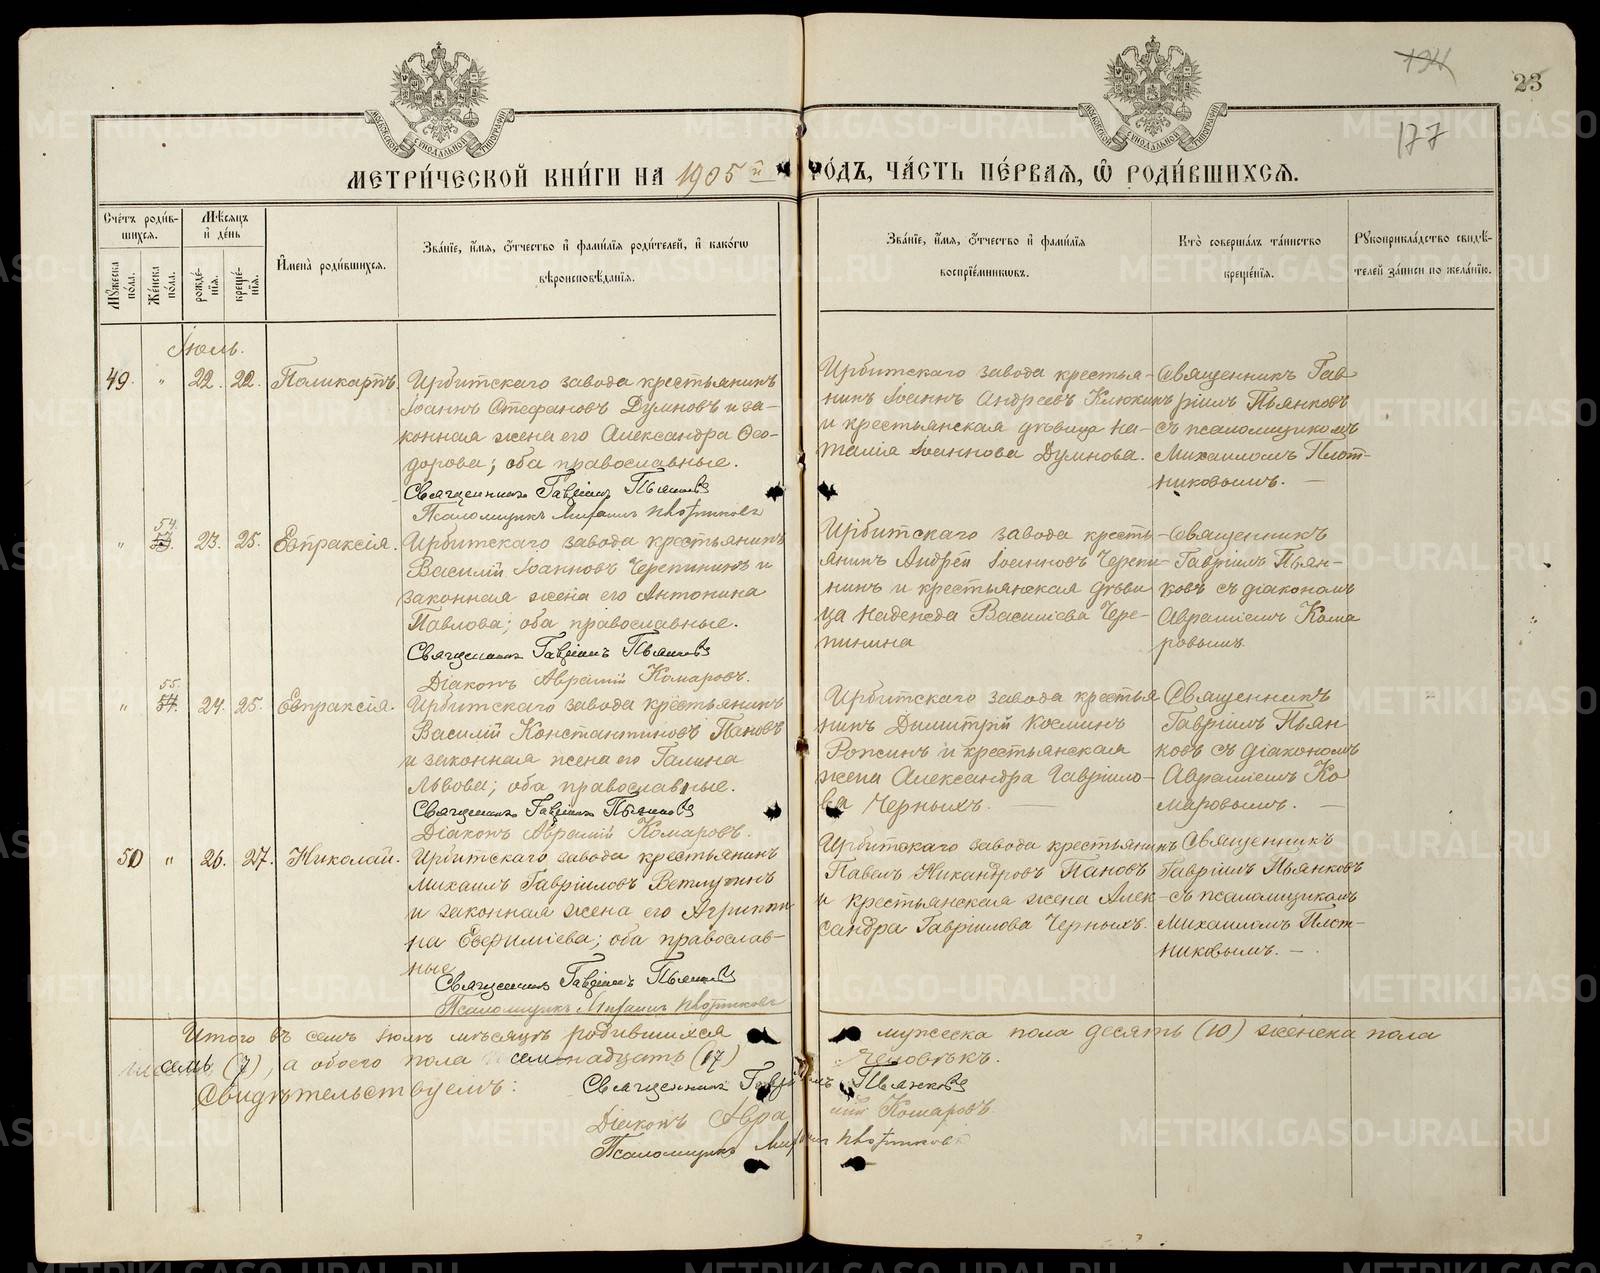 194
23
177
МЕТРИ́ЧЕСКОЙ КНИ́ГИ НА 1905 й ГО́ДЪ, ЧА́СТЬ ПЕ́РВАѦ, Ѿ РОДИ́ВШИХСѦ.
Сче́тъ роди́вшихсѧ.
Мѣ́сѧцъ и҆ де́нь
Мꙋ́жеска по́ла.
Же́нска по́ла.
рожде́нїѧ.
креще́нїѧ.
И҆мена̀ роди́вшихсѧ.
Зва́нїе, и҆́мѧ, ѻ҆́тчество и҆ фами́лїѧ роди́телей, и҆ како́гѡ
вѣроисповѣ́данїѧ.
Зва́нїе, и҆́мѧ, ѻ҆́тчество и҆ фами́лїѧ
воспрїе́мникѡвъ.
Кто̀ соверша́лъ та́инство
креще́нїѧ.
Рꙋкоприкла́дство свидѣ́-
телей за́писи по жела́нїю.
Іюль.
49. " 22. 22. Поликарпъ.
Ирбитскаго завода крестьянинъ
Іоаннъ Стефановъ Думновъ и за-
конная жена его Александра Ѳео-
дорова; оба православные.
Священникъ Гавріилъ Пьянковъ
Псаломщикъ Михаилъ Плотниковъ
Ирбитскаго завода крестья-
нинъ Іоаннъ Андреевъ Клюкинъ
и крестьянская дѣвица На-
талія Іоаннова Думнова.
Священникъ Гав
ріилъ Пьянковъ
съ псаломщикомъ
Михаиломъ Плот-
никовымъ. —
" 54. 53. 23. 25. Евпраксія.
Ирбитскаго завода крестьянинъ
Василій Іоанновъ Черепининъ и
законная жена его Антонина
Павлова; оба православные.
Священникъ Гавріилъ Пьянковъ
Діаконъ Аврамій Комаровъ.
Ирбитскаго завода кресть-
янинъ Андрей Іоанновъ Черепи-
нинъ и крестьянская дѣви
ца Надежда Василіева Чере-
пинина
Священникъ
Гавріилъ Пьян-
ковъ съ діакономъ
Авраміемъ Кома
ровымъ
" 55. 54. 24. 25. Евпраксія.
Ирбитскаго завода крестьянинъ
Василій Константиновъ Пановъ
и законная жена его Галина
Львова; оба православные.
Священникъ Гавріилъ Пьянковъ
Діаконъ Аврамій Комаровъ.
Ирбитскаго завода крестья
нинъ Димитрій Косминъ
и крестьянская
жена Александра Гавріило-
ва Черныхъ. —
Священникъ
Гавріилъ Пьян
ковъ съ діакономъ
Авраміемъ Ко
маровымъ. —
50 " 26. 27. Николай.
Ирбитскаго завода крестьянинъ
Михаилъ Гавріиловъ Ветлугинъ
и законная жена его Агриппи
на Евфиміева; оба православ-
ные
Священникъ Гавріилъ Пьянковъ
Псаломщикъ Михаилъ Плотниковъ
Ирбитскаго завода крестьянинъ
Павелъ Никандровъ Пановъ
и крестьянская жена Алек-
сандра Гавріилова Черныхъ.
Священникъ
Гавріилъ Пьянковъ
съ псаломщикомъ
Михаиломъ Плот-
никовымъ. —
Итого въ семъ Іюлѣ мѣсяцѣ родившихся мужеска пола десять (10) женска пола
семь (7), а обоего пола семнадцать (17) человѣкъ.
Свидѣтельствуемъ: Священникъ Гавріилъ Пьянковъ
Діаконъ Аврамій Комаровъ.
Псаломщикъ Михаилъ Плотниковъ